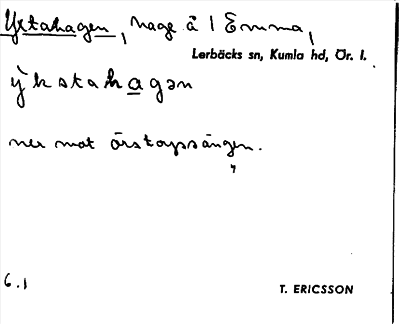 Yxtahagen, hage å 1 Emma,
Lerbäcks sn, Kumla hd, Ör. l.
ỳkstahagən
ner mot örstorpsängen.
6.1
T. ERICSSON